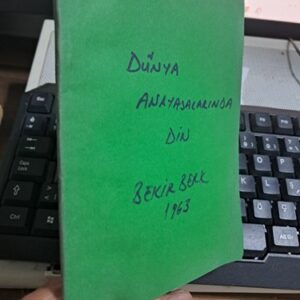 DÜNYA
ANAYASALARINDA
DİN
BEKİR BERK
1963